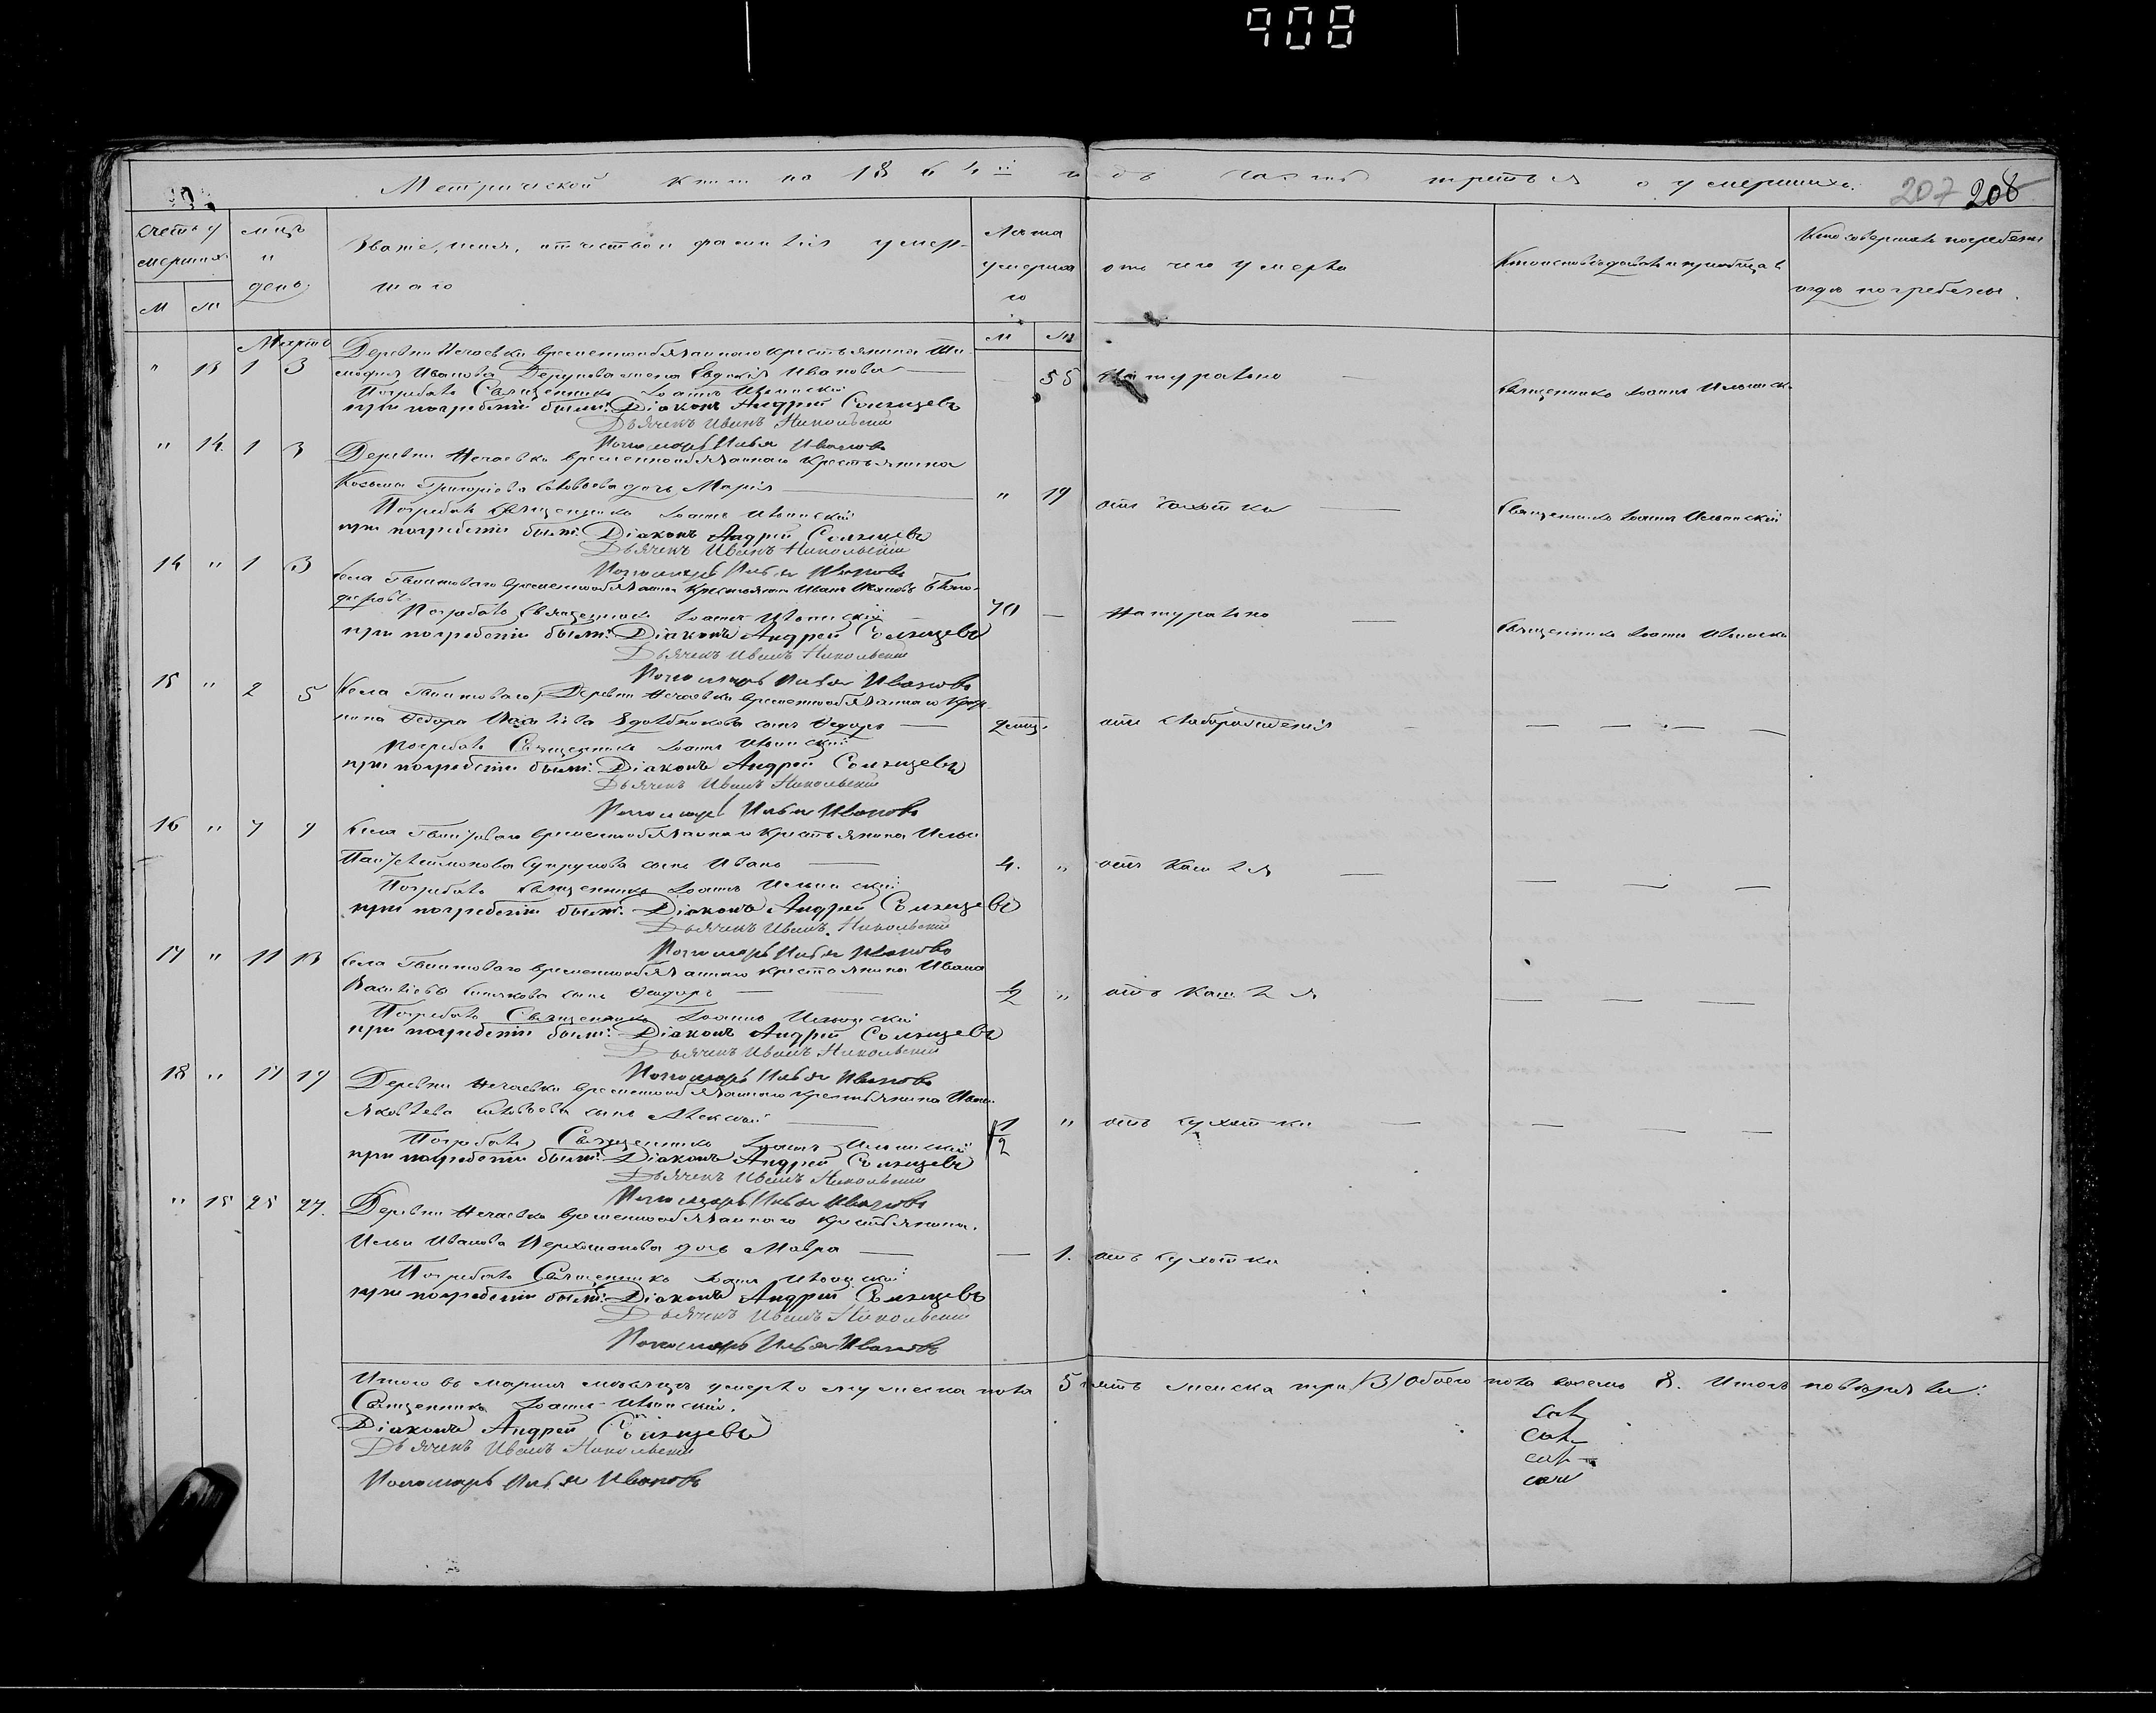 908
Метрической книги на 1864й годъ часть третья о умершихъ.
207 208
Счетъ умершихъ
м м
мцъ и день
Званіе, имя, отчество и фамилія умершаго
Лѣта умершаго
м м
отъ чего умерла
Кто исповѣдовалъ и пріобщалъ
Кто совершалъ погребеніе и гдѣ погребены.
Мартъ
" 13 1 3 Деревни Нечаевки временнообязаннаго крестьянина Ти-
мофея Иванова жена Евдокія Иванова — 55 Натурально — Священникъ Іоаннъ Ильинск.
Погребалъ Священникъ Іоаннъ Ильинскій
при погребеніи были: Діаконъ Андрей Солнцевъ
Дьячекъ Иванъ Никольскій
Пономарь Илья Ивановъ
" 14. 1 3 Деревни Нечаевки временнообязаннаго крестьянина
Козьмы Григорьева Соловьева дочь Марія — " 19 отъ чахотки — Священникъ Іоаннъ Ильинскій
Погребалъ Священникъ Іоаннъ Ильинскій
при погребеніи были: Діаконъ Андрей Солнцевъ
Дьячекъ Иванъ Никольскій
Пономарь Илья Ивановъ
14 " 1 3 Села временнообязанный крестьянинъ Иванъ Ивановъ
70 — Натурально — Священникъ Іоаннъ Ильинскій
Погребалъ Священникъ Іоаннъ Ильинскій
при погребеніи были: Діаконъ Андрей Солнцевъ
Дьячекъ Иванъ Никольскій
Пономарь Илья Ивановъ
15 " 2 5 Села Деревни Нечаевки временнообязаннаго крест-
нина Федора сынъ Федоръ — 2 мц. отъ слаборожденія — — — —
Погребалъ Священникъ Іоаннъ Ильинскій
при погребеніи были: Діаконъ Андрей Солнцевъ
Дьячекъ Иванъ Никольскій
Пономарь Илья Ивановъ
16 " 7 9 Села временнообязаннаго крестьянина Ильи
Супрунова сынъ Иванъ — 4. " отъ Кашля — — — —
Погребалъ Священникъ Іоаннъ Ильинскій
при погребеніи были: Діаконъ Андрей Солнцевъ
Дьячекъ Иванъ Никольскій
Пономарь Илья Ивановъ
17 " 11 13 Села временнообязаннаго крестьянина Ивана
Васильева сынъ Феодоръ — — 1/2 " отъ Кашля — — —
Погребалъ Священникъ Іоаннъ Ильинскій
при погребеніи были: Діаконъ Андрей Солнцевъ
Дьячекъ Иванъ Никольскій
Пономарь Илья Ивановъ
18 " 17 19 Деревни Нечаевки временнообязаннаго крестьянина Ивана
Яковлева Соловьева сынъ Алексей — 1/2 " отъ сухотки — — — —
Погребалъ Священникъ Іоаннъ Ильинскій
при погребеніи были: Діаконъ Андрей Солнцевъ
Дьячекъ Иванъ Никольскій
Пономарь Илья Ивановъ
" 15 25 27. Деревни Нечаевки временнообязаннаго крестьянина.
Ильи Иванова дочь Мавра — — 1. отъ сухотки
Погребалъ Священникъ Іоаннъ Ильинскій
при погребеніи были: Діаконъ Андрей Солнцевъ
Дьячекъ Иванъ Никольскій
Пономарь Илья Ивановъ
Итого въ мартѣ мѣсяцѣ умерло мужеска пола 5 пять женска три (3) обоего пола восемь 8.
Священникъ Іоаннъ Ильинскій.
Діаконъ Андрей Солнцевъ
Дьячекъ Иванъ Никольскій
Пономарь Илья Ивановъ